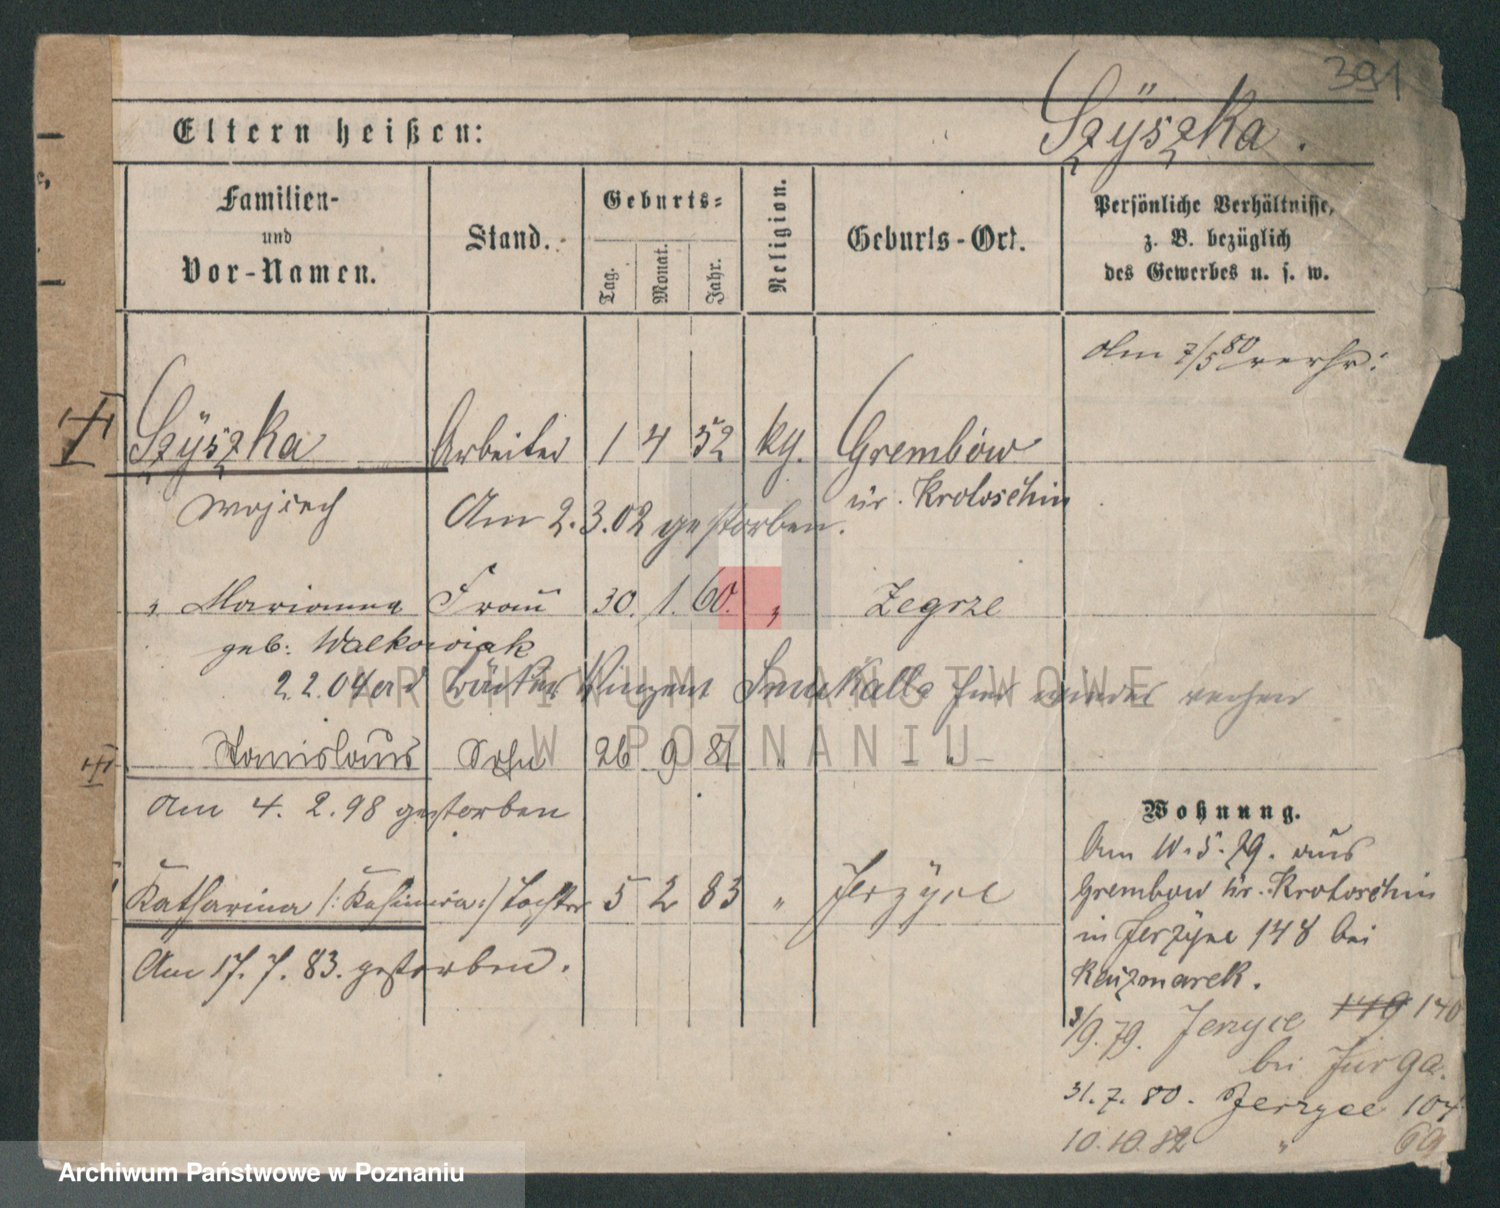 391
Eltern heißen: Szÿszka.
Familien- und Vor-Namen. Stand. Geburts- Tag. Monat. Jahr. Religion. Geburts-Ort. Persönliche Verhältnisse, z. B. bezüglich des Gewerbes u. s. w.
Am 7/5 80 verh:
Szÿszka Arbeiter 1 4 52 kg. Grembów
Wojciech Kr. Krotoschin
Am 2.3.02 gestorben.
" Marianna Frau 30. 1. 60. " Zegrze
geb: Walkowiak
2 2.04 Vinzent hier wieder
Stanislaus Sohn 26 9 81 "
Am 4. 2. 98 gestorben
Katharina /: Kasimira :/ Tochter 5 2 83 " Jerzÿce
Am 17. 7. 83. gestorben.
Wohnung.
Am 5. 79. aus
Grembow Kr. Krotoschin
in Jerzÿce 148 bei
Kaczmarek.
3/9. 79. Jerzyce 149 140
bei Jurga.
31. 7. 80. Jerzyce 104
10. 10. 82 " 69
ARCHIWUM PAŃSTWOWE
W POZNANIU
Archiwum Państwowe w Poznaniu